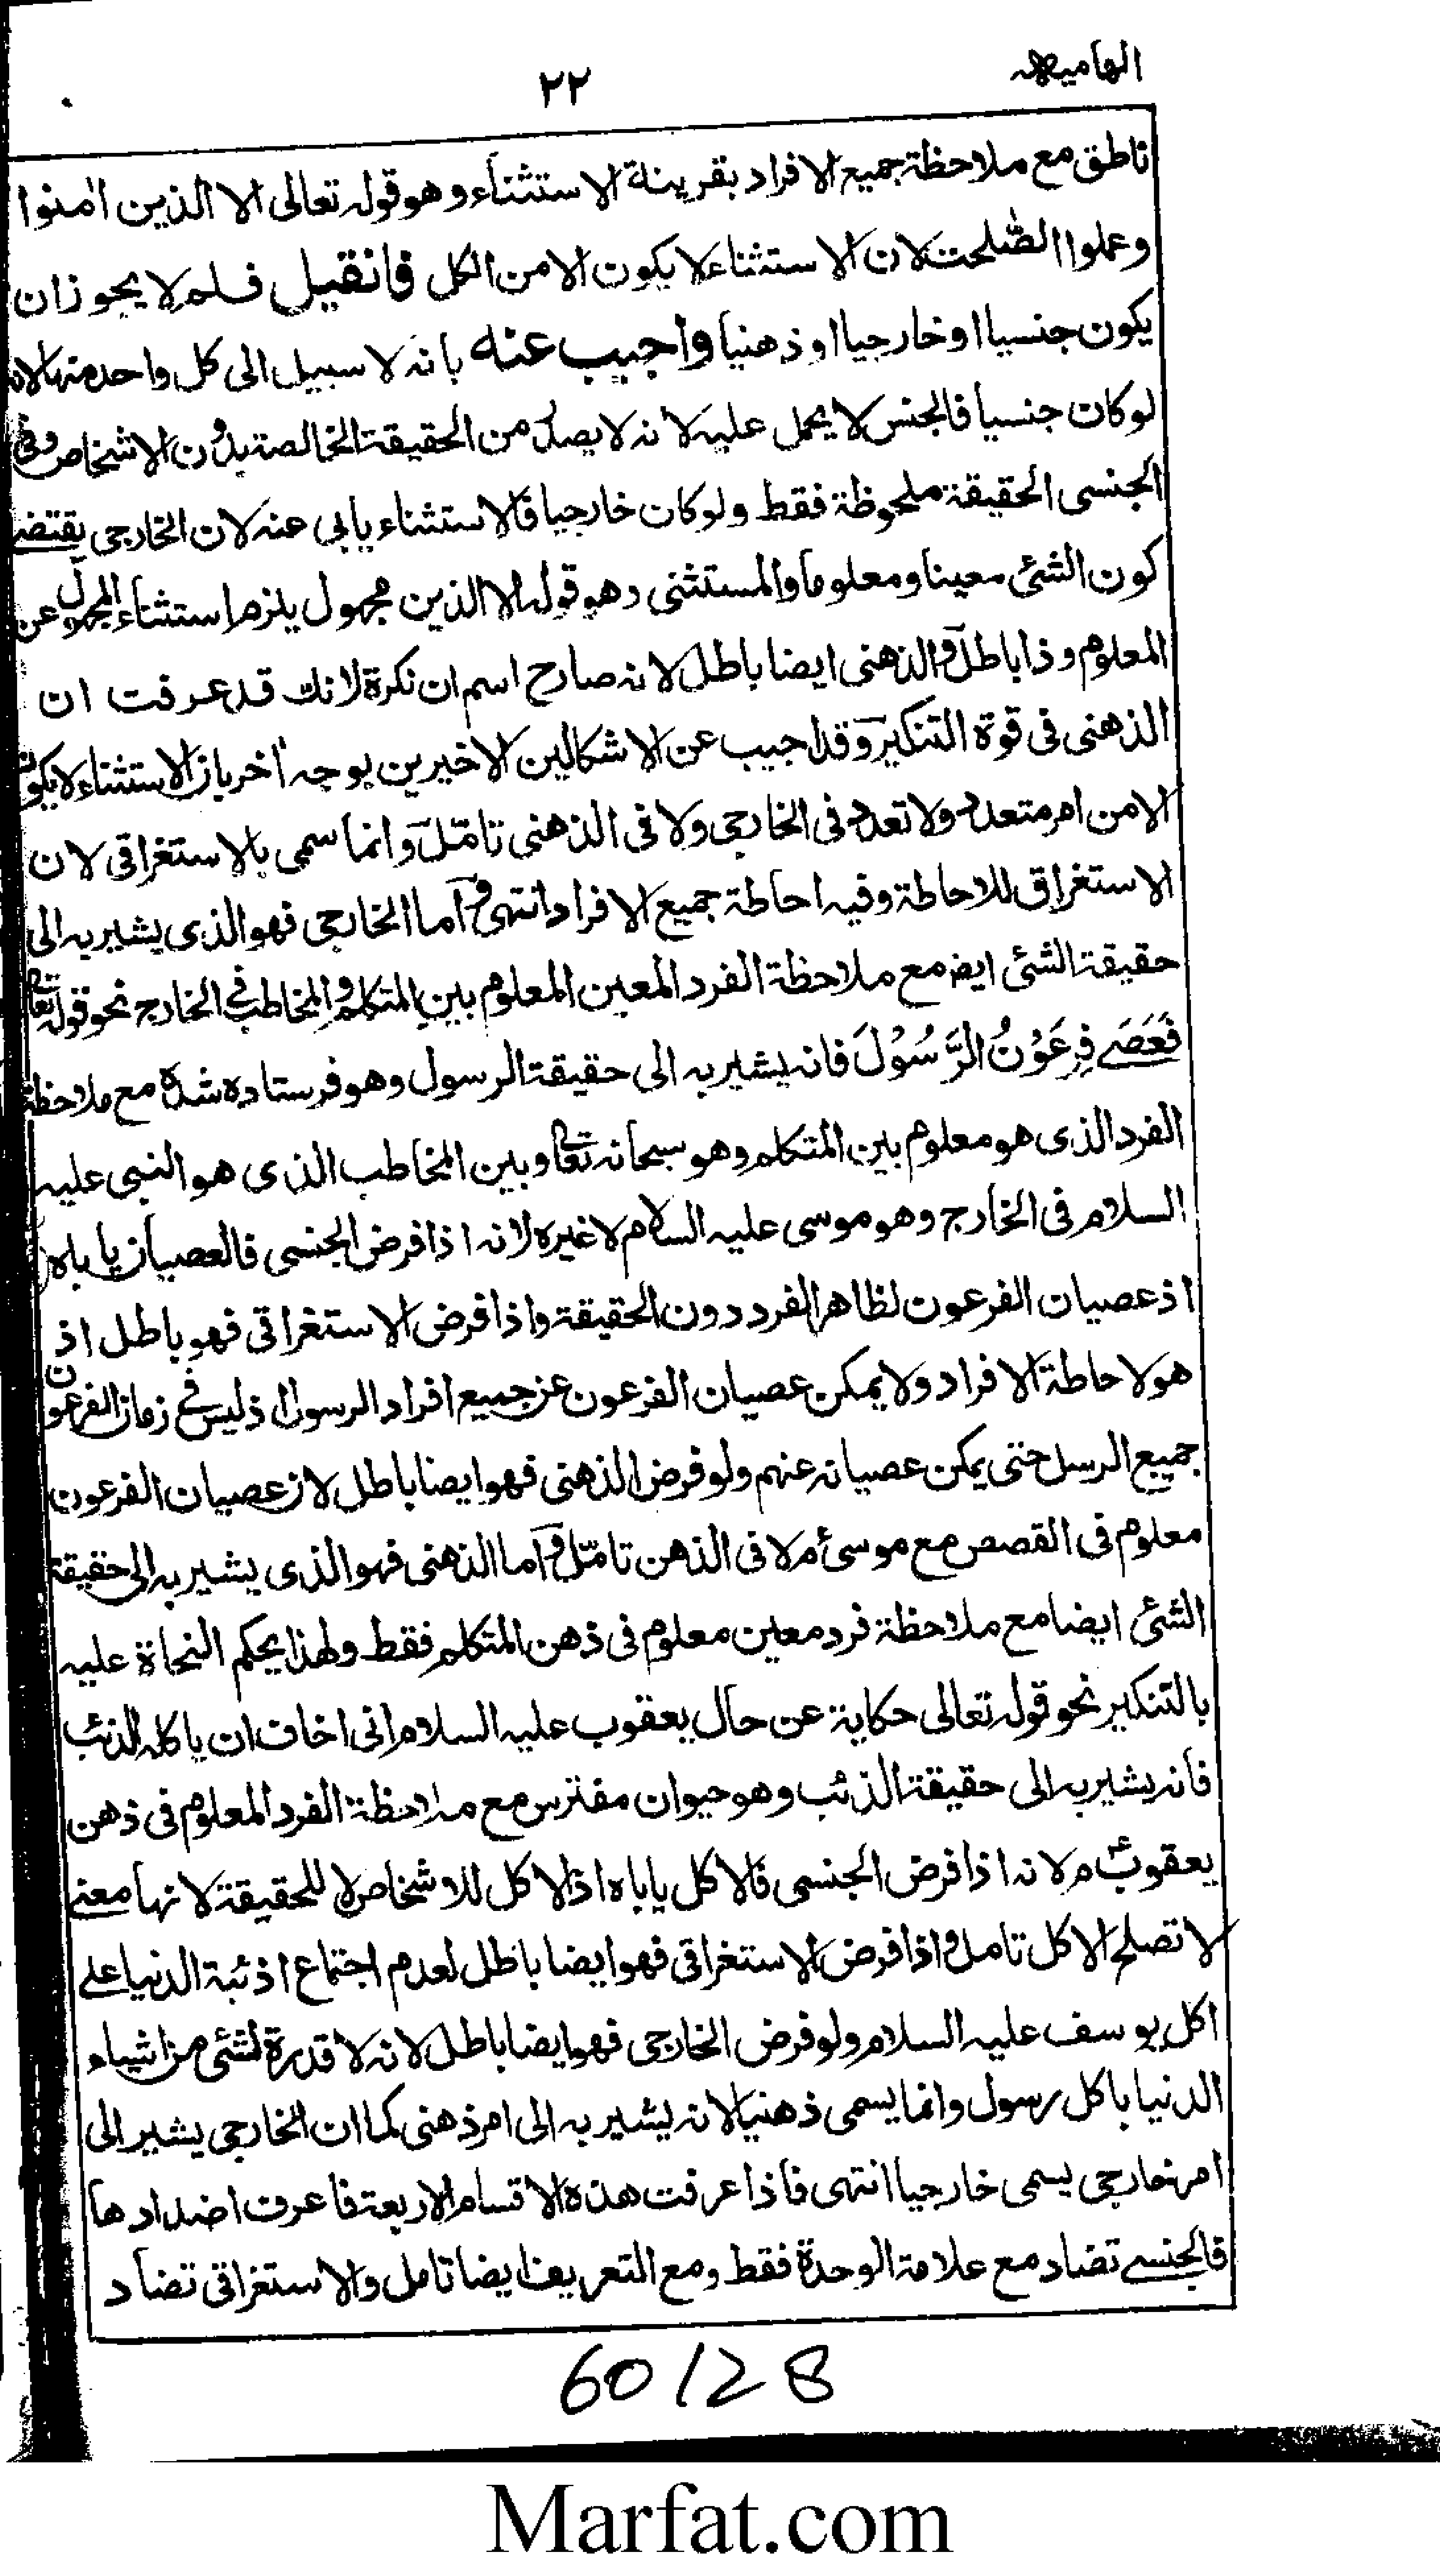 الهاميه
٢٢
ناطق مع ملاحظة جميع الافراد بقرينة الاستثناء وهو قوله تعالى الا الذين اٰمنوا
وعملوا الصّٰلحٰت لان الاستثناء لا يكون الا من الكل فان قيل فلم لا يجوز ان
يكون جنسيا او خارجيا او ذهنيا واجيب عنه بانه لا سبيل الى كل واحد منها لانه
لو كان جنسيا فالجنس لا يحمل عليه لانه لا يصلح من الحقيقة الخالصة بدون الاشخاص وفي
الجنسى الحقيقة ملحوظة فقط ولو كان خارجيا فالاستثناء يابى عنه لان الخارجى يقتضے
كون الشئ معينا ومعلوما والمستثنى وهو قوله الا الذين مجهول يلزم استثناء المجهول عن
المعلوم وذا باطل والذهنى ايضا باطل لانه صارح اسم ان نكرة لانك قد عرفت ان
الذهنى فى قوة التنكير وقد اجيب عن الاشكالين الاخيرين بوجه اٰخر بان الاستثناء لا يكون
الا من امر متعدد ولا تعدد فى الخارجى ولا فى الذهنى تامّل وانما سمى بالاستغراقى لان
الاستغراق للاحاطة وفيه احاطة جميع الافراد انتهى واما الخارجى فهو الذى يشير به الى
حقيقة الشئ ايض مع ملاحظة الفرد المعين المعلوم بين المتكلم والمخاطب فے الخارج نحو قوله تعالى
فَعَصَے فِرْعَوْنُ الرَّسُوْلَ فانه يشير به الى حقيقة الرسول وهو فرستاده شده مع ملاحظة
الفرد الذى هو معلوم بين المتكلم وهو سبحانه تعالى وبين المخاطب الذى هو النبى عليه
السلام فى الخارج وهو موسى عليه السلام لا غيره لانه اذا فرض الجنسى فالعصيان ياباه
اذ عصيان الفرعون لظاهر الفرد دون الحقيقة واذا فرض الاستغراقى فهو باطل اذ
هو لاحاطة الافراد ولا يمكن عصيان الفرعون عن جميع افراد الرسول اذ ليس فے زمان الفرعون
جميع الرسل حتى يمكن عصيانه عنهم ولو فرض الذهنى فهو ايضا باطل لان عصيان الفرعون
معلوم فى القصص مع موسىٰ ءم لا فى الذهن تامّل واما الذهنى فهو الذى يشير به الى حقيقة
الشئ ايضا مع ملاحظة فرد معين معلوم فى ذهن المتكلم فقط ولهذا يحكم النحاة عليه
بالتنكير نحو قوله تعالى حكاية عن حال يعقوب عليه السلام انى اخاف ان ياكله الذئب
فانه يشير به الى حقيقة الذئب وهو حيوان مفترس مع ملاحظة الفرد المعلوم فى ذهن
يعقوب ءم لانه اذا فرض الجنسى فالاكل ياباه اذ الاكل للاشخاص لا للحقيقة لانها معنے
لا تصلح الاكل تامل واذا فرض الاستغراقى فهو ايضا باطل لعدم اجتماع اذئبة الدنيا علے
اكل يوسف عليه السلام ولو فرض الخارجى فهو ايضا باطل لانه لا قدرة لشئ من اشياء
الدنيا باكل رسول وانما يسمى ذهنيا لانه يشير به الى امر ذهنى كما ان الخارجى يشير الى
امر خارجى يسمى خارجيا انتهى فاذا عرفت هذه الاقسام الاربعة فاعرف اضدادها
فالجنسے تضاد مع علامة الوحدة فقط ومع التعريف ايضا تامل والاستغراقى تضاد
60128
Marfat.com